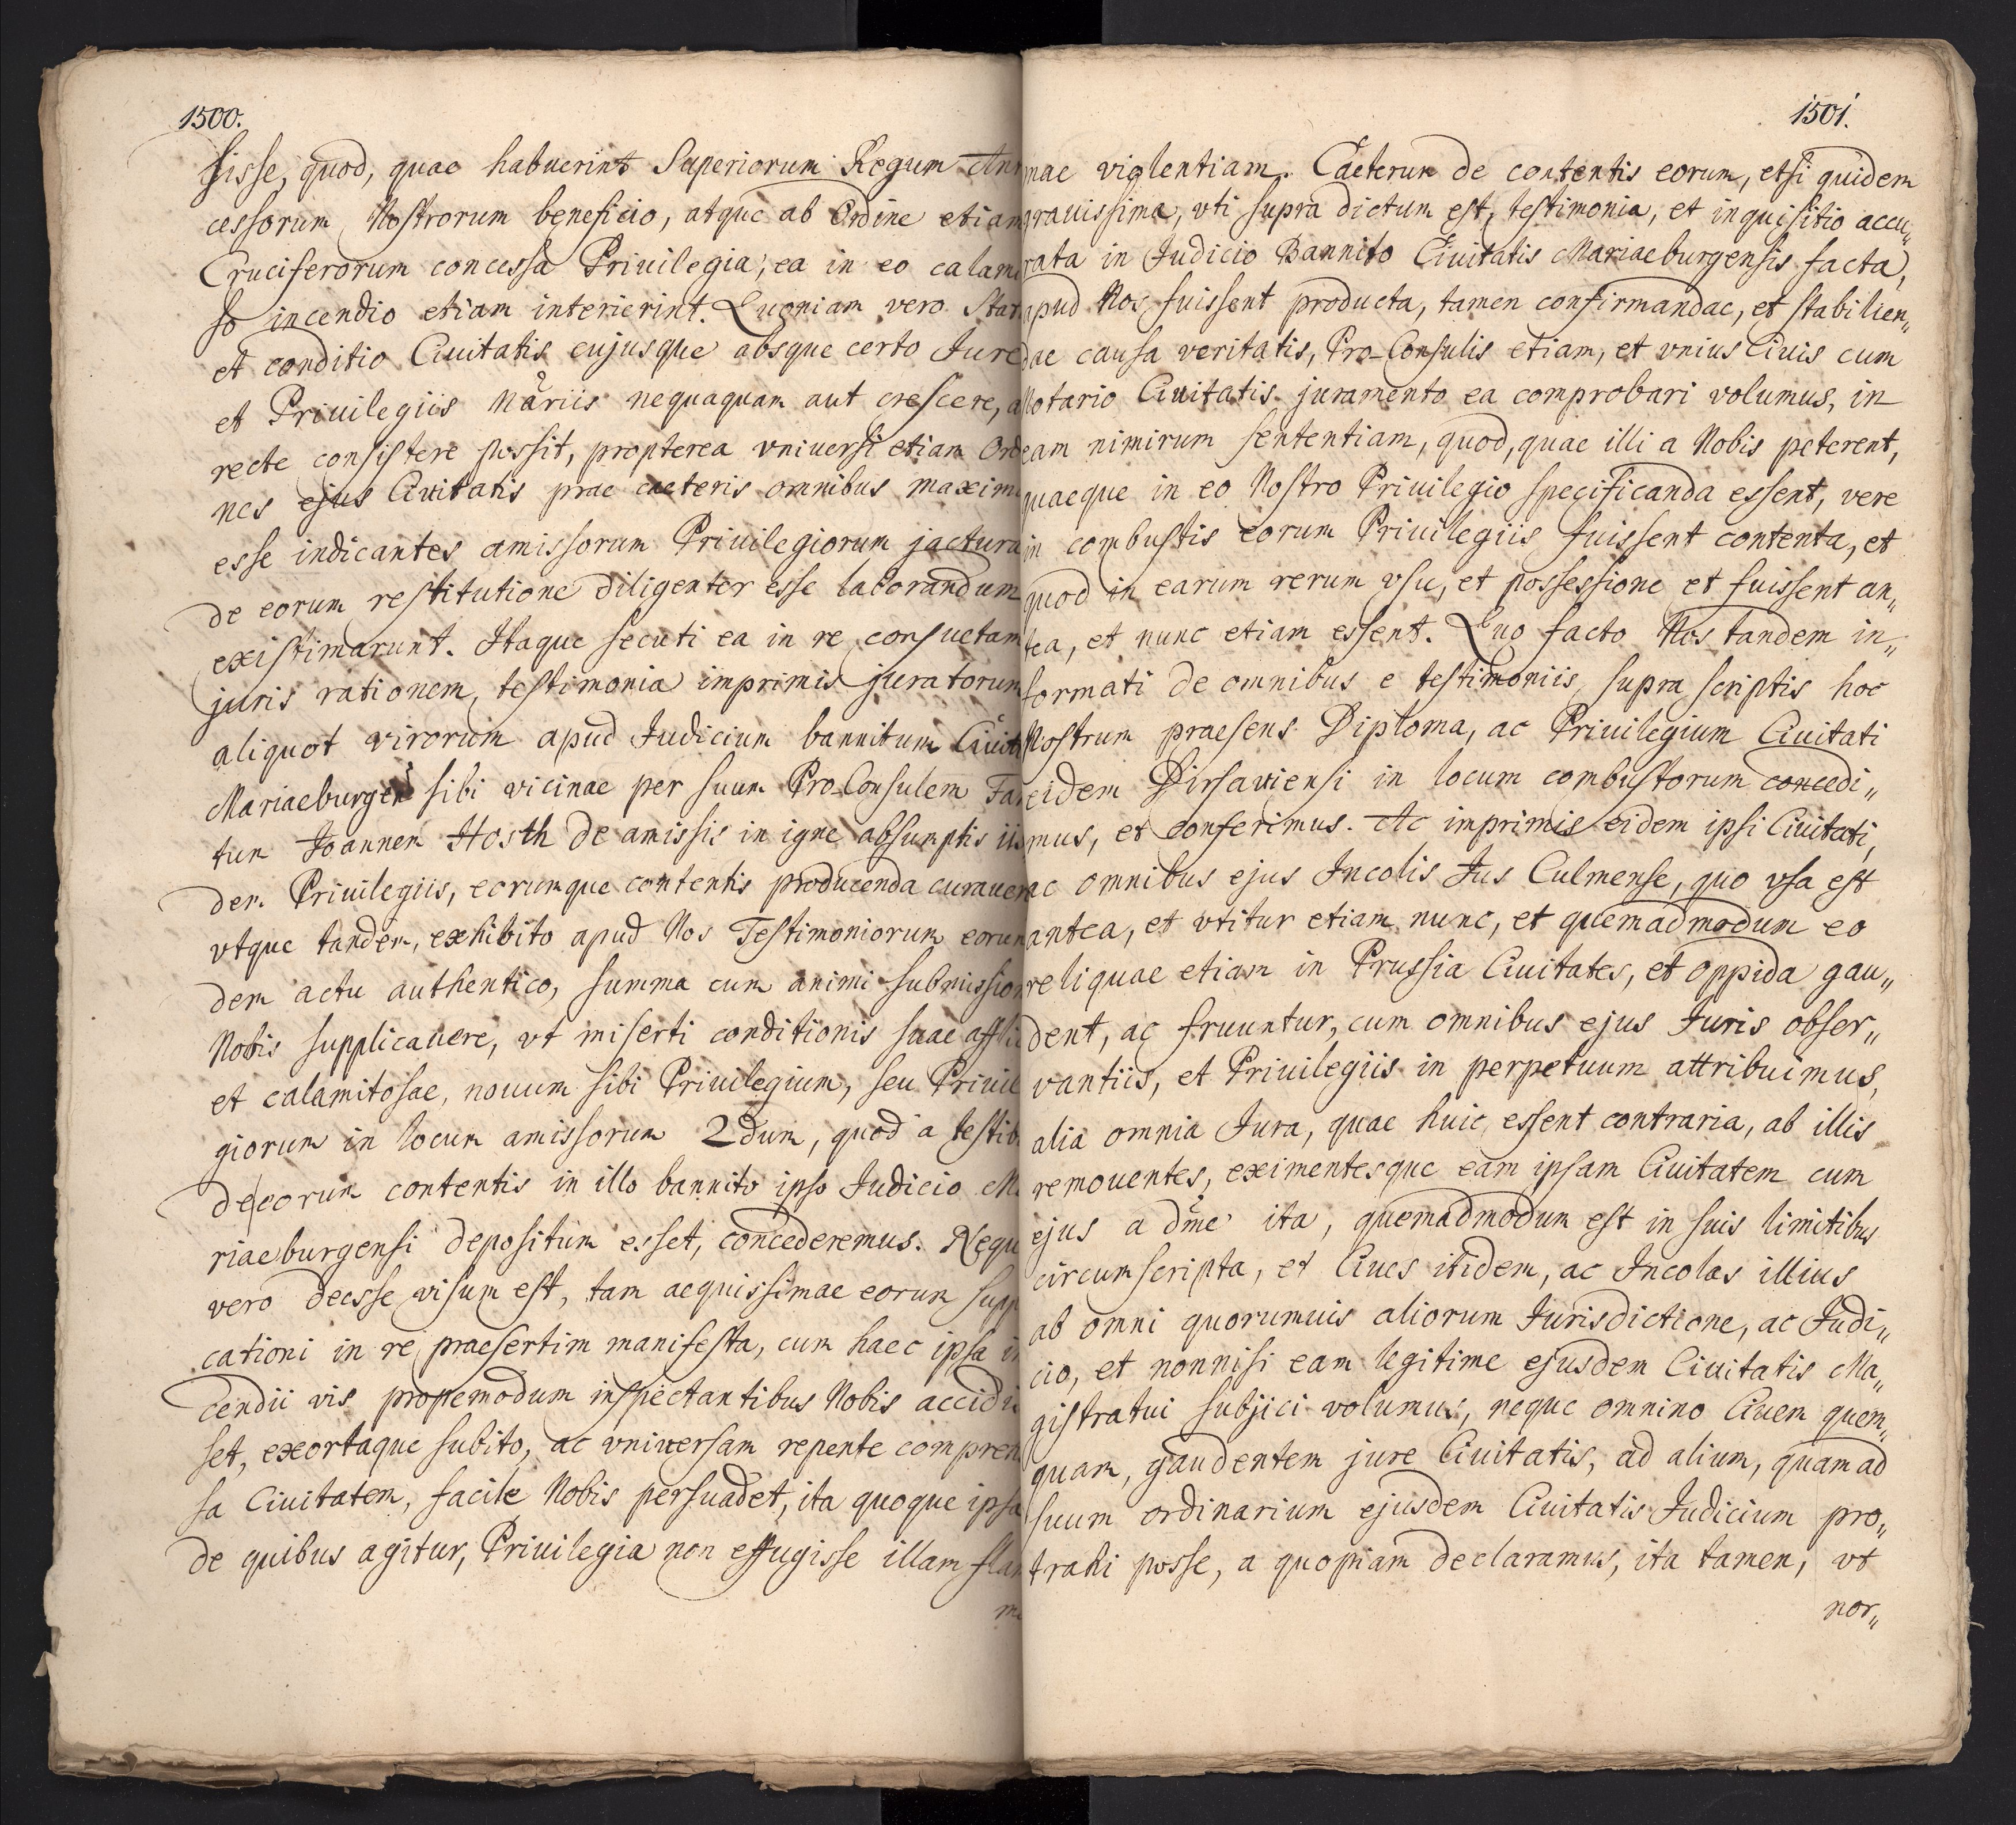 1500.
sisse, quod, quae habuerint Superiorum Regum An
cessorum Nostrorum beneficio, atque ab Ordine etiam
Cruciferorum concessa Priuilegia, ea in eo calami
so incendio etiam interierint. Quoniam vero Stat
et conditio Ciuitatis cujusque absque certo Jure
et Priuilegiis nariis nequaquam aut crescere, a
recte consistere possit, propterea vniuersi etiam Ord
nes ejus Ciuitatis prae caeteris omnibus maxim
esse indicantes amissorum Priuilegiorum jactura
de eorum restitutione diligenter esse laborandum
existimarunt. Itaque secuti ea in re consuetam
juris rationem, testimonia imprimis juratorum
aliquot virorum apud Judicium bannitum Ciuit
Mariaeburgen sibi vicinae per suum Pro-Consulem Fa
tum Joannem Hosth de amissis in igne absumptis iis
dem Priuilegiis, eorumque contentis producenda curauer
vtque tandem, exhibito apud Nos Testimoniorum eorun
dem actu authentico, summa cum animi submission
Nobis supplicauere, vt miserti conditionis suae affli
et calamitosae, nouum sibi Priuilegium, seu Priuile
giorum in locum amissorum 2dum, quod a testib
de eorum contentis in illo bannito ipso Judicio Ma
riaeburgensi depositum esset, concederemus. Nequ
vero deesse visum est, tam aequissimae eorum supp
cationi in re praesertim manifesta, cum haec ipsa in
cendii vis propemodum inspectantibus Nobis accidis
set, exortaque subito, ac vniversam repente compren
sa Ciuitatem, facile Nobis persuadet, ita quoque ipsa
de quibus agitur, Priuilegia non effugisse illam flam
ma
1501.
mae violentiam. Caeterum de contentis eorum, etsi quidem
grauissima, vti supra dictum est, testimonia, et inquisitio accu„
rata in Judicio Bannito Ciuitatis Mariaeburgensis facta,
apud Nos fuissent producta, tamen confirmandae, et stabilien„
dae causa veritatis, Pro-Consulis etiam, et vnius Ciuis cum
Notario Ciuitatis juramento ea comprobari volumus, in
eam nimirum sententiam, quod, quae illi a Nobis peterent,
quaeque in eo Nostro Priuilegio specificanda essent, vere
in combustis eorum Priuilegiis fuissent contenta, et
quod in earum rerum vsu, et possessione et fuissent an„
tea, et nunc etiam essent. Quo facto Nos tandem in„
formati de omnibus e testimoniis supra scriptis hoc
Nostrum praesens Diploma, ac Priuilegium Ciuitati
eidem Dirsaviensi in locum combustorum concedi„
mus, et conferimus. Ac imprimis eidem ipsi Ciuitati,
ac omnibus ejus Incolis Jus Culmense, quo vsa est
antea, et vtitur etiam nunc, et quemadmodum eo
reliquae etiam in Prussia Ciuitates, et oppida gau„
dent, ac fruuntur, cum omnibus ejus Juris obser„
vantiis, et Priuilegiis in perpetuum attribuimus,
alia omnia Jura, quae huic essent contraria, ab illis
remouentes, eximentesque eam ipsam Ciuitatem cum
ejus a dme ita, quemadmodum est in suis limitibus
circumscripta, et Ciues itidem, ac Incolas illius
ab omni quorumuis aliorum Jurisdictione, ac Judi„
cio, et nonnisi eam legitime ejusdem Ciuitatis Ma„
gistratui subjici volumus, neque omnino Ciuem quem„
quam, gaudentem jure Ciuitatis, ad alium, quam ad
suum ordinarium ejusdem Ciuitatis Judicium pro„
trahi posse, a quopiam declaramus, ita tamen, vt
nor„